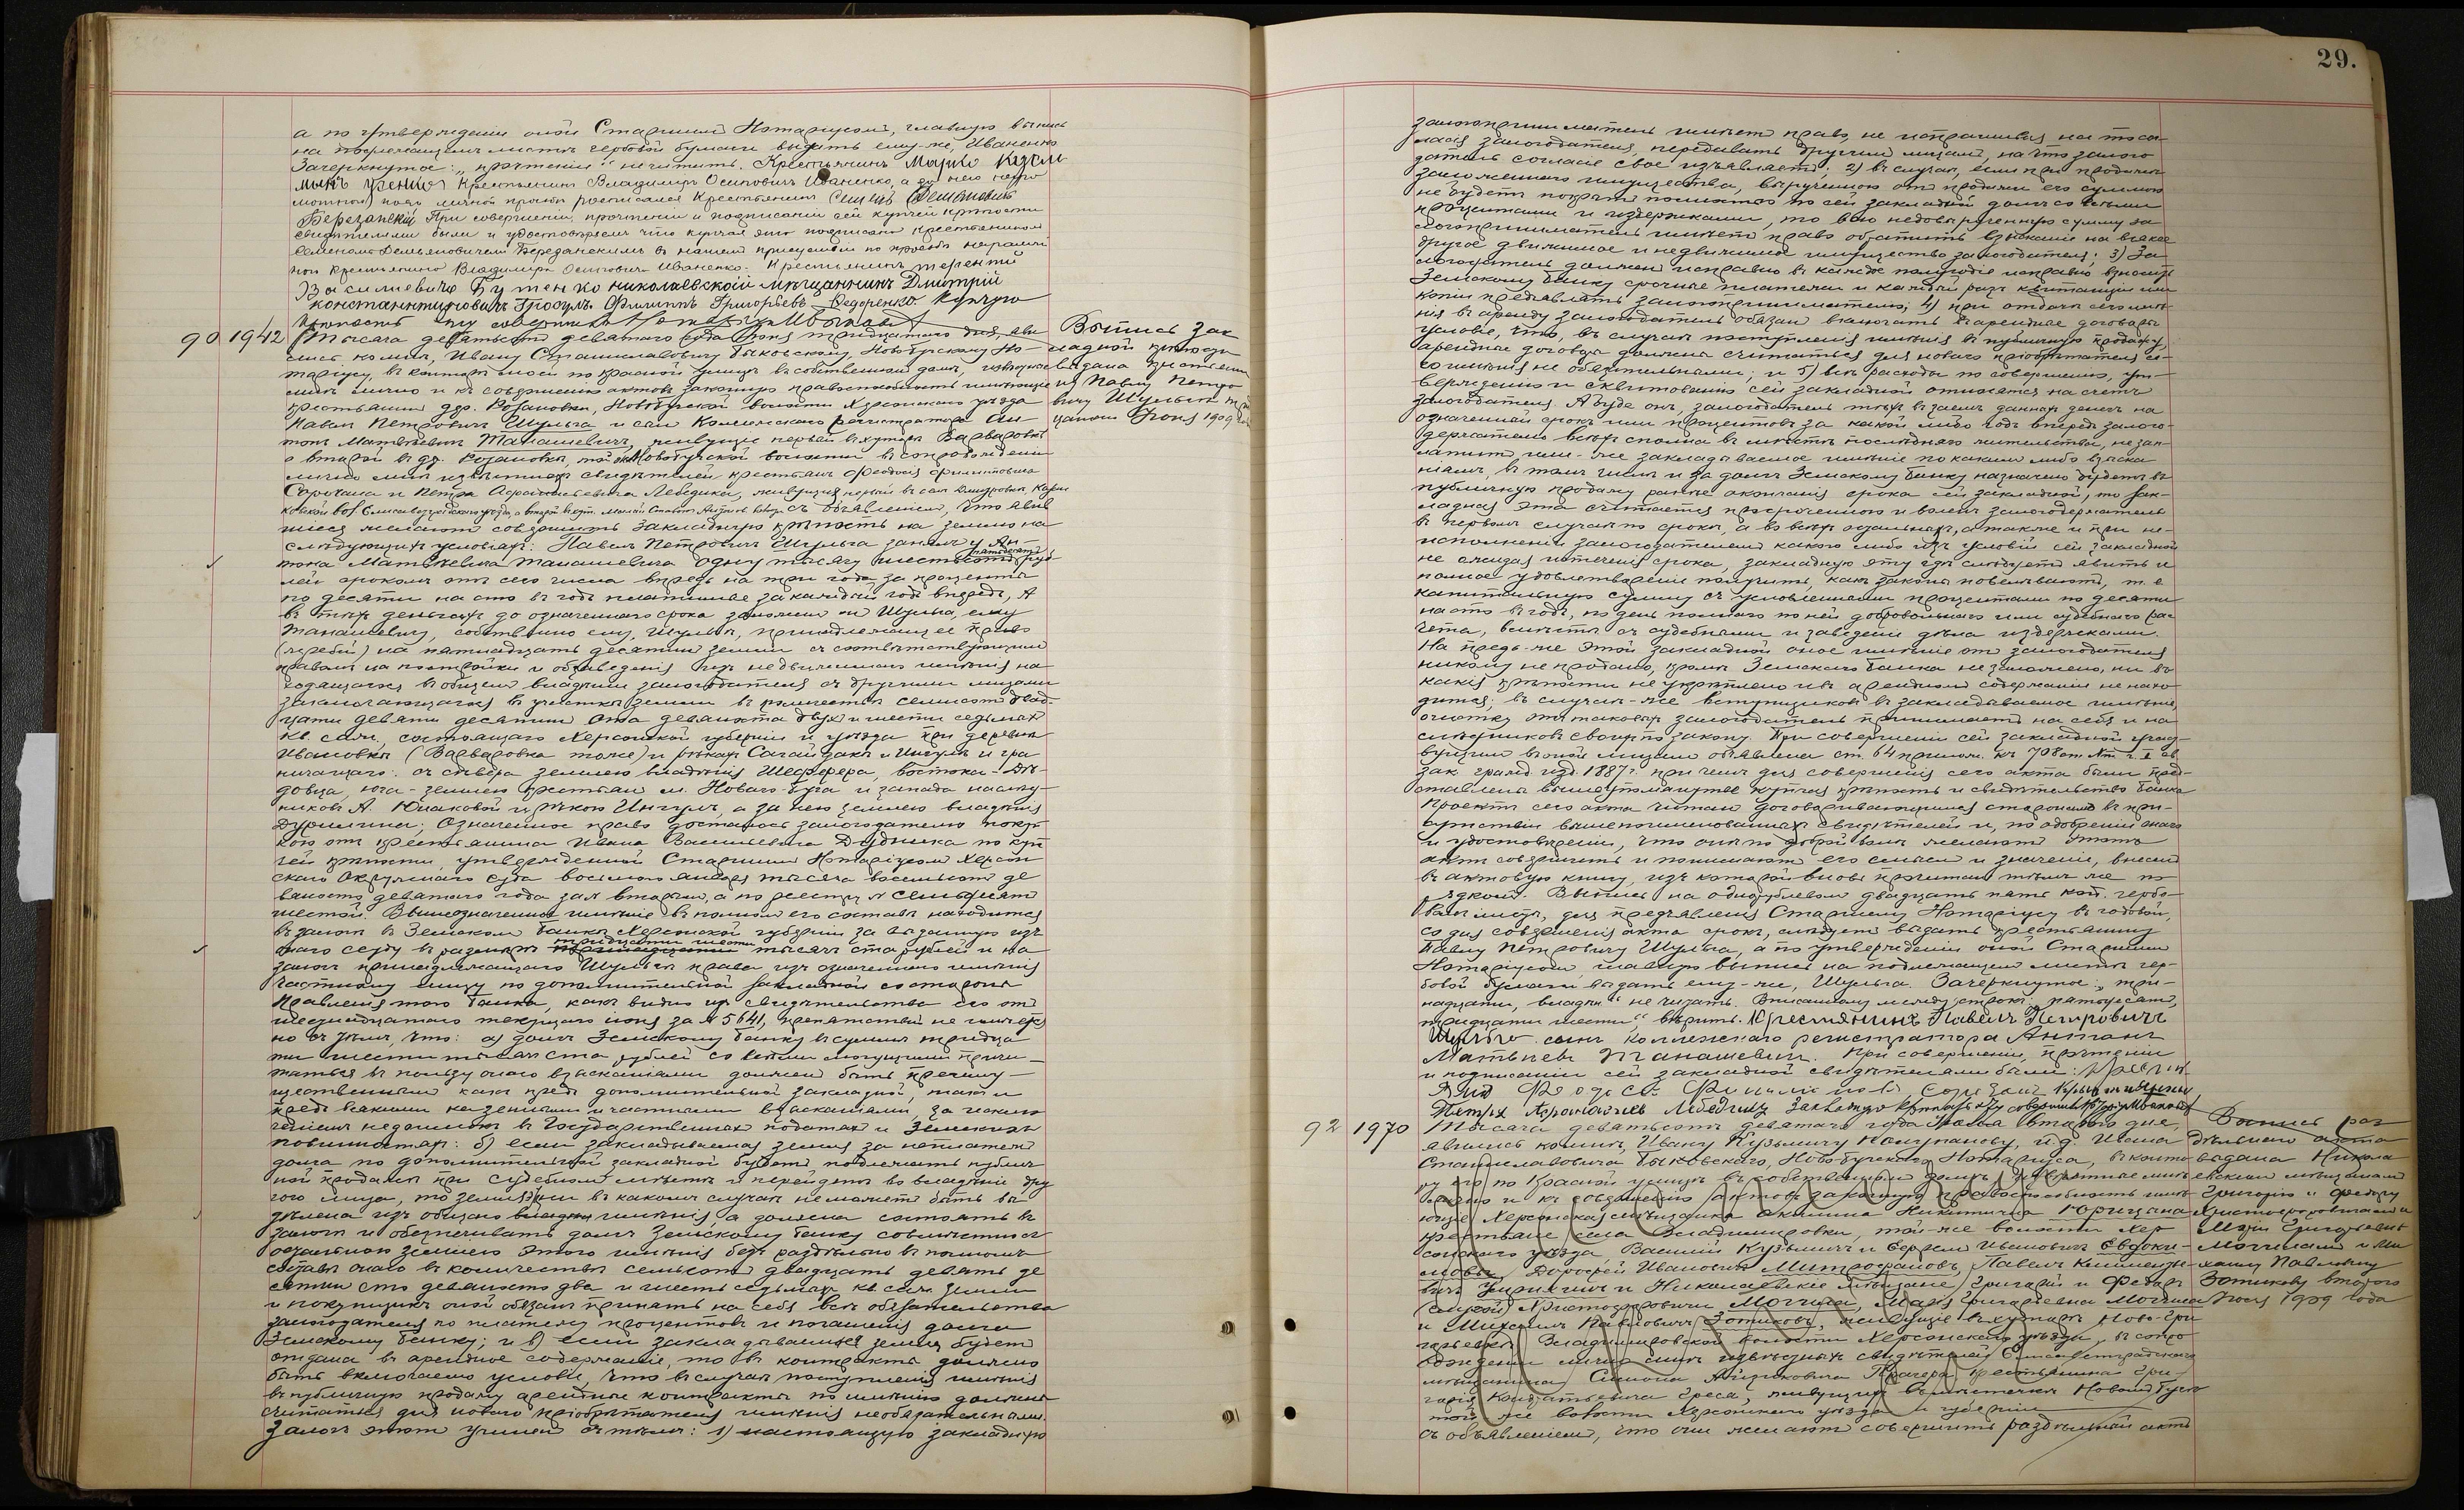 а по утвержденіи оной Старшимъ Нотаріусомъ, главную выпись
на подлежащемъ листѣ гербовой бумаги выдать ему-же, Иваненко
Зачеркнутое: „ не читать. Крестьянинъ Марко
Крестьянинъ Владиміръ Осиповичъ Иваненко, а за него негра
мотнаго по его личной просьбѣ росписался Крестьянинъ Семенъ Демьяновичъ
Березанскій При совершеніи, прочтеніи и подписаніи сей купчей крѣпости
свидѣтелями были и удостовѣряемъ что купчая эта подписана крестьяниномъ
Семеномъ Демьяновичемъ Березанскимъ въ нашемъ присутствіи по просьбѣ неграмот
наго крестьянина Владиміра Осиповича Иваненко. Крестьянинъ терентій
Василиевичъ Бутенко николаевскій мѣщанинъ Дмитрій
константиновичъ Филиппъ Григорьевъ Федоренко. Купчую
крѣпость эту совершилъ Нотаріусъ И Быковскій
90 1942 Тысяча девятьсотъ девятаго года Іюня тридцатаго дня, яви
лись ко мнѣ, Ивану Станиславовичу Быковскому, Новобугскому Но-
таріусу, въ контору мою по Красной улицѣ въ собственномъ домѣ, извѣстные
мнѣ лично и къ совершенію актовъ законную правоспособность имѣющіе
крестьянинъ дер. Розановки, Новобугской волости Херсонскаго уѣзда
Павелъ Петровичъ Шульга и сынъ Коллежскаго регистратора Ан-
тонъ Матвѣевичъ Танашевичъ, живущіе первый въ хуторѣ Варваровкѣ
а второй въ дер. Розановкѣ, той же Новобугской волости въ сопровожденіи
лично мнѣ извѣстныхъ свидѣтелей, крестьянъ Феодосія Филипповича
Сорочана и Петра Афанасьевича Лебедика, живущихъ первый въ селѣ
Елисаветградскаго уѣзда, а второй въ съ объявленіемъ, что явив
шіеся желаютъ совершить закладную крѣпость на землю на
слѣдующихъ условіяхъ: Павелъ Петровичъ Шульга занялъ у Ан-
тона Матвѣевича Танашевича одну тысячу шестьсотъ пятьдесятъ руб
лей срокомъ отъ сего числа впредь на три года за проценты
по десяти на сто въ годъ платимые за каждый годъ впередъ, А
въ тѣхъ деньгахъ до означеннаго срока заложилъ онъ Шульга, ему
Танашевичу, собственно ему, Шульгѣ, принадлежащее право
(жребій) на пятнадцать десятинъ земли съ соотвѣтствующимъ
правомъ на постройки и обзаведенія изъ недвижимаго имѣнія на-
ходящагося въ общемъ владѣніи залогодателя съ другими лицами
заключающагося въ участкѣ земли въ количествѣ семисотъ двад-
цати девяти десятинъ ста девяноста двухъ и шести седьмыхъ
кв. саж., состоящаго Херсонской губерніи и уѣзда при деревнѣ
Ивановкѣ (Варваровка тоже) и рѣкахъ Сагайдакъ и Ингулъ и гра
ничащаго: съ сѣвера землею владѣнія Шефера, востока - Дѣ-
довца, юга - землею крестьянъ м. Новаго-Буга и запада наслѣд-
никовъ А. Юнаковой и рѣкою Ингулъ, а за нею землею владѣнія
Дурилина; Означенное право досталось залогодателю покуп
кою отъ крестьянина Ивана Васильевича Дудника по куп
чей крѣпости, утвержденной Старшимъ Нотаріусомъ Херсон
скаго Окружнаго Суда восьмого января тысяча восемьсотъ де
вяносто девятаго года за № вторымъ, а по реестру № семьдесятъ
шестой. Вышеозначенное имѣніе въ полномъ его составѣ находится
въ залогѣ въ Земскомъ Банкѣ Херсонской губерніи за выданную изъ
онаго ссуду въ размѣрѣ тридцати шести тысячъ ста рублей и на
залогъ принадлежащаго Шульгѣ права изъ означеннаго имѣнія
частному лицу по дополнительной закладной со стороны
Правленія того Банка, какъ видно изъ свидѣтельства его отъ
шестнадцатаго текущаго іюня за № 5641, препятствій не имѣется
но съ тѣмъ, что: а) долгъ Земскому Банку въ суммѣ тридца
ти шести тысячъ ста рублей со всѣми могущими причи-
таться въ пользу онаго взысканіями долженъ быть преиму-
щественнымъ какъ предъ дополнительной закладной, такъ и
предъ всякими казенными и частными взысканіями, за исклю
ченіемъ недоимокъ въ Государственныхъ податяхъ и Земскихъ
повинностяхъ: б) если закладываемая земля за неплатежъ
долга по дополнительной закладной будетъ подлежать публич
ной продажѣ при судебномъ мѣстѣ и перейдетъ во владѣніе дру
гого лица, то земля ни въ какомъ случаѣ не можетъ быть вы
дѣлена изъ общаго имѣнія, а должна состоять въ
залогѣ и обезпечивать долгъ Земскому Банку совмѣстно съ
остальною землею этого имѣнія безъ раздѣльно въ полномъ
составѣ онаго въ количествѣ семьсотъ двадцать девять де
сятинъ сто девяносто два и шесть седьмыхъ кв. саж. земли
и покупщикъ оной обязанъ принять на себя всѣ обязательства
залогодателя по платежу процентовъ и погашенія долга
Земскому Банку; и в) если закладываемая земля будетъ
отдана въ арендное содержаніе, то въ контрактѣ должно
быть включаемо условіе, что въ случаѣ поступленія имѣнія
въ публичную продажу арендные контракты по имѣнію должны
считаться для новаго пріобрѣтателя имѣнія необязательными.
Залогъ этотъ учиненъ съ тѣмъ: 1) настоящую закладную
Выпись зак
ладной крѣпости
выдана крестьяни
ну Павлу Петро
вичу Шульгѣ трид
цатаго Іюня 1909 года
29.
залогоприниматель имѣетъ право, не испрашивая на то со-
гласія залогодателя, передавать другимъ лицамъ, на что залого
датель согласіе свое изъявляетъ; 2) въ случаѣ, если при продажѣ
заложеннаго имущества, вырученною отъ продажи его суммою
не будетъ покрытъ полностью по сей закладной долгъ со всѣми
процентами и издержками, то всю недовырученную сумму за
логоприниматель имѣетъ право обратить взысканіе на всякое
другое движимое и недвижимое имущество залогодателя; 3) За
логодатель долженъ исправно въ каждое полугодіе исправно взносить
Земскому Банку срочные платежи и каждый разъ квитанціи или
копіи предъявлять залогопринимателю; 4) при отдачѣ сего имѣ-
нія въ аренду залогодатель обязанъ включать въ арендные договоры
условіе, что, въ случаѣ поступленія имѣнія въ публичную продажу
арендные договоры должны считаться для новаго пріобрѣтателя се-
го имѣнія не обязательными; и 5) всѣ расходы по совершенію, ут-
вержденію и сей закладной относятся на счетъ
залогодателя. А буде онъ, залогодатель тѣхъ въ заемъ данныхъ денегъ на
означенный срокъ или процентовъ за какой либо годъ впередъ залого-
держателю всѣхъ сполна въ мѣстѣ послѣдняго жительства, не зап-
латитъ, или-же закладываемое имѣніе по какимъ либо взыска
ніямъ, въ томъ числѣ и за долгъ Земскому Банку назначено будетъ въ
публичную продажу ранѣе окончанія срока сей закладной, то зак-
ладная эта считается просроченною и воленъ залогодержатель
въ первомъ случаѣ по срокѣ, а во всѣхъ остальныхъ, а также и при не-
исполненіи залогодателемъ какого либо изъ условій сей закладной
не ожидая истеченія срока, закладную эту гдѣ слѣдуетъ явить и
полное удовлетвореніе получить, какъ законы повелѣваютъ, т. е.
капитальную сумму съ условленными процентами по десяти
на сто въ годъ, по день полнаго по ней добровольнаго или судебнаго рас
чета, вмѣстѣ съ судебными и заведенія дѣла издержками.
На предь-же этой закладной оное имѣніе отъ залогодателя
никому не продано, кромѣ Земскаго Банка не заложено, ни въ
какія крѣпости не укрѣплено и въ арендномъ содержаніи не нахо
дится; въ случаѣ-же вступщиковъ въ закладываемое имѣніе,
очистку отъ таковыхъ залогодатель принимаетъ на себя и на
слѣдниковъ своихъ по закону. При совершеніи сей закладной участ-
вующимъ въ оной лицамъ объявлена ст. 64 прилож. къ 708 ст. X т. ч. I св.
зак. гражд изд. 1887 г. при чемъ для совершенія сего акта были пред-
ставлены вышеупомянутые купчая крѣпость и свидѣтельство Банка
Проектъ сего акта читанъ договаривающимся сторонамъ въ при-
сутствіи вышепоименованныхъ свидѣтелей и, по одобреніи онаго
и удостовѣреніи, что они по доброй волѣ желаютъ этотъ
актъ совершить и понимаютъ его смыслъ и значеніе, внесенъ
въ актовую книгу, изъ которой вновь прочитанъ тѣмъ же по-
рядкомъ. Выпись на однорублевомъ двадцать пять коп. гербо-
вомъ листѣ, для предъявленія Старшему Нотаріусу въ годовой,
со дня совершенія акта срокъ, слѣдуетъ выдать крестьянину
Павлу Петровичу Шульгѣ, а по утвержденіи оной Старшимъ
Нотаріусомъ, главную выпись на подлежащемъ листѣ гер-
бовой бумаги выдать ему-же, Шульгѣ. Зачеркнутое: „три-
надцати, владѣн“ не читать. Вписанному между строкъ: пятьдесятъ,
тридцати шести“ вѣрить. Крестьянинъ Павелъ Петровичъ
Шульга. сынъ коллежскаго регистратора Антонъ
Матвѣевъ Танашевичъ. При совершеніи, прочтеніи
и подписаніи сей закладной свидѣтелями были:
Крестьянинъ
Петръ Афанасьевъ Лебедикъ Закладную крѣпость эту совершилъ Нотаріусъ И Быковскій
92 1970 Тысяча девятьсотъ девятаго года Іюля второго дня,
явились ко мнѣ, Ивану Кузьмичу Колупанову, и.д. Ивана
Станиславовича Быковскаго, Ново-Бугскаго Нотаріуса, въ конто
ру его по Красной улицѣ въ собственномъ домѣ, извѣстные мнѣ
лично и къ совершенію актовъ законную правоспособность имѣ
ющіе Херсонская мѣщанка Акилина Никитична
крестьяне села Владимировки, той-же волости Хер
сонскаго уѣзда, Василій Кузьмичъ и Ивановичъ Евдоки-
мовы, Дорофей Ивановичъ Митрофановъ, Павелъ Клименть-
вичъ и Николаевскіе мѣщане Григорій и Федоръ
Христофоровичи Могчила, Марія Григорьевна Могчила
и Михаилъ Павловичъ Зотиковъ, живущіе въ хуторѣ Ново-Гри
горьевкѣ Владимировской волости Херсонскаго уѣзда, въ сопро
вожденіи лично мнѣ извѣстныхъ свидѣтелей Елисаветградскаго
мѣщанина Симона Айзиковича крестьянина Гри
горія Кондратьевича живущихъ въ мѣстечкѣ Новомъ Бугѣ
той же волости Херсонскаго уѣзда и губерніи
съ объявленіемъ, что они желаютъ совершить раздѣльный актъ
Выпись раз
дѣльнаго акта
выдана Никола
евскимъ мѣщанамъ
Григорію и Федору
Христофоровичамъ и
Маріи Григорьевнѣ
Могчиламъ и Ми
хаилу Павловичу
Зотикову второго
Іюля 1909 года